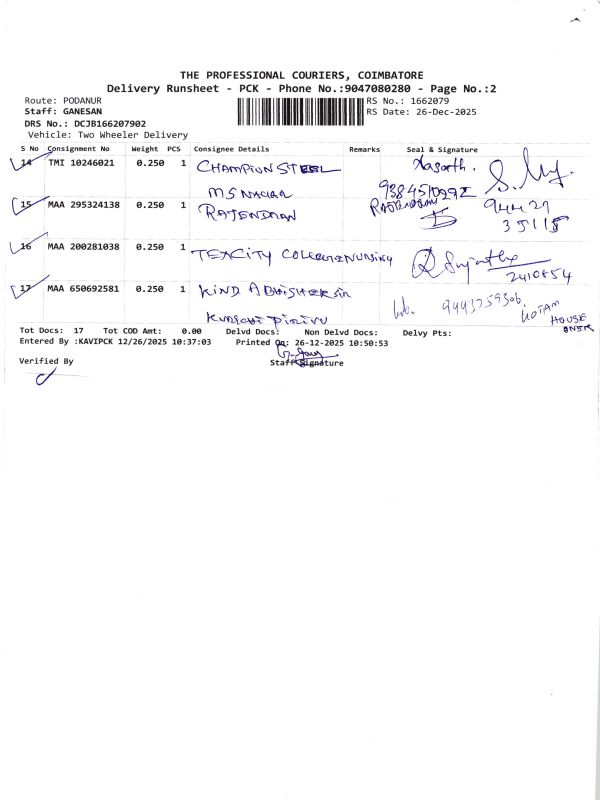 THE PROFESSIONAL COURIERS, COIMBATORE
Delivery Runsheet - PCK - Phone No.:9047080280 - Page No.:2
Route: PODANUR
Staff: GANESAN
DRS No.: DCJB166207902
Vehicle: Two Wheeler Delivery
RS No.: 1662079
RS Date: 26-Dec-2025
S No Consignment No Weight PCS Consignee Details Remarks Seal & Signature
14 TMI 10246021 0.250 1 CHAMPION STEEL
9384510292
MS NAGAR
15 MAA 295324138 0.250 1 RAJENDRAN
94427
35115
16 MAA 200281038 0.250 1 TEXCITY COLLEGE NURSING Sujatha
2410854
17 MAA 650692581 0.250 1 KIND 9443759306
HOUSE
Tot Docs: 17 Tot COD Amt: 0.00 Delvd Docs: Non Delvd Docs: Delvy Pts:
Entered By :KAVIPCK 12/26/2025 10:37:03 Printed On: 26-12-2025 10:50:53
Verified By Staff Signature